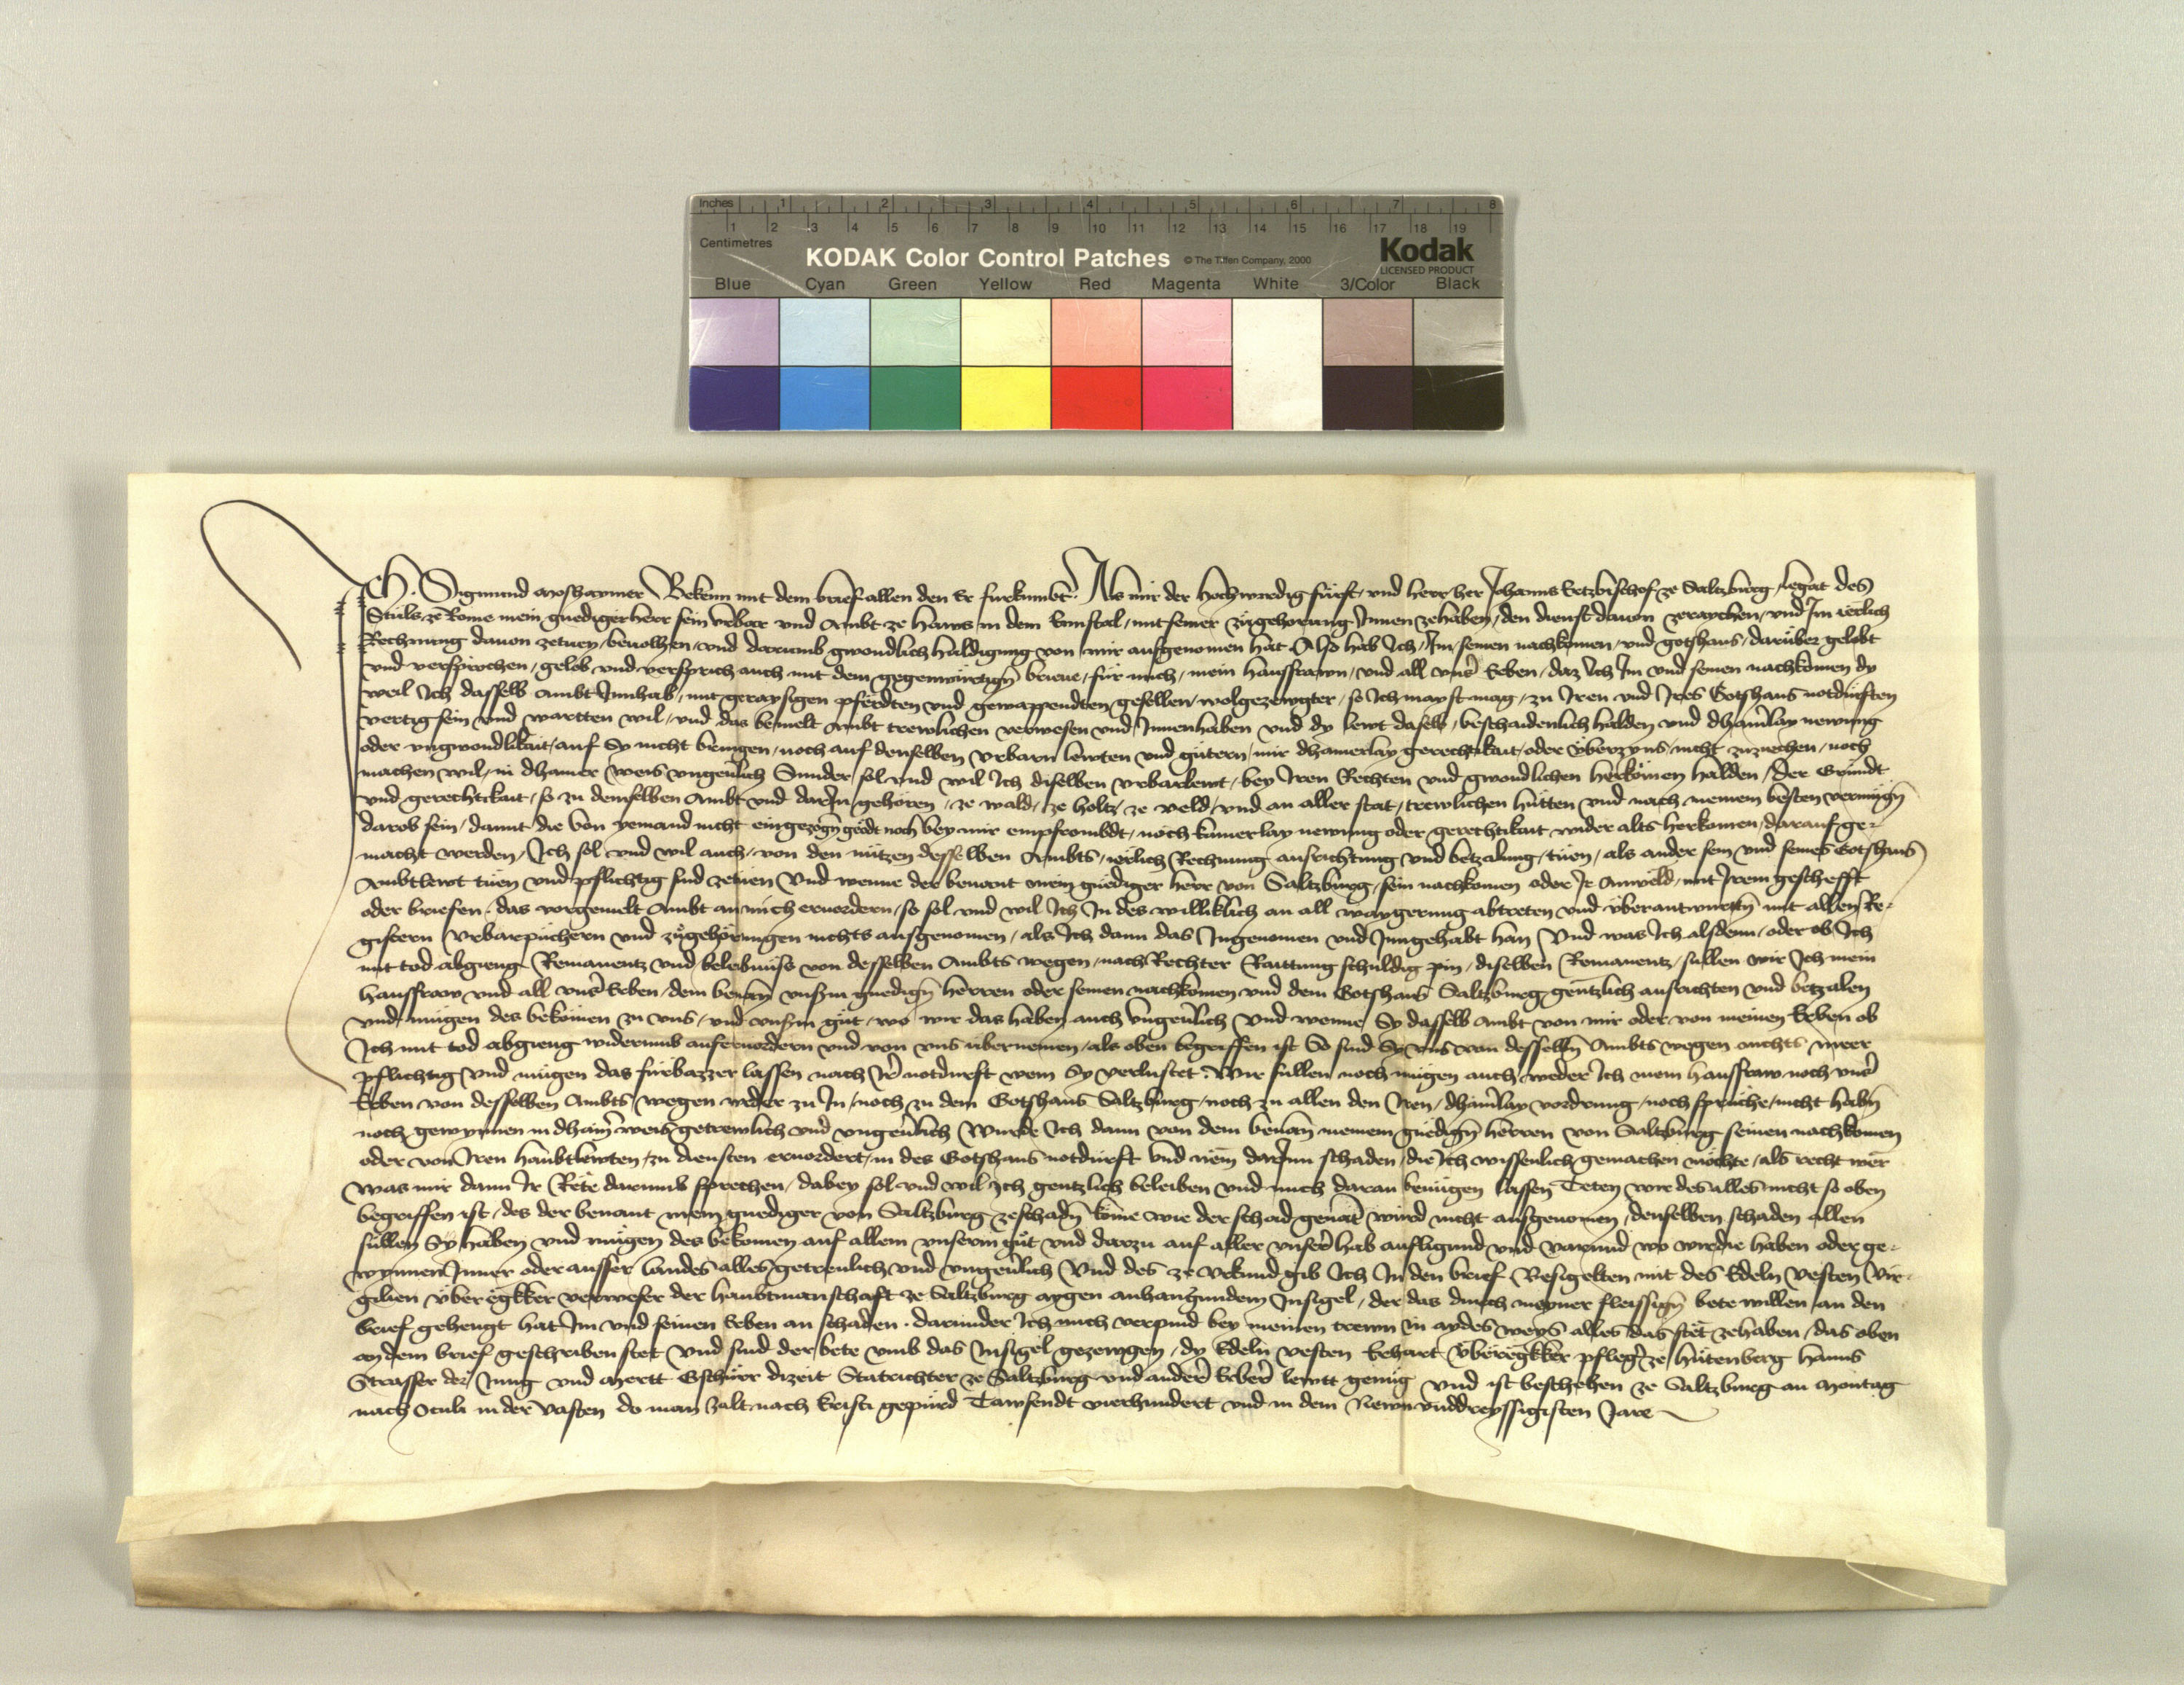 Inches 1 2 3 4 5 6 7 8
1 2 3 4 5 6 7 8 9 10 11 12 13 14 15 16 17 18 19
Centimetres
KODAK Color Control Patches © The Tiffen Company, 2000 Kodak
LICENSED PRODUCT
Blue Cyan Green Yellow Red Magenta White 3/Color Black
Ich Sigmund Moshaymer Bekenn mit dem brief allen den Er furkumbt Als mir der hochwirdig fürst und herr her Johanns Ertzbischof ze Saltzburg legat des
Stuls ze Rome mein gnediger herr sein urbar und Ambt ze Haws in dem Ennstal mit seiner zugehorung Innen zehaben den dienst dauon zeraychen und Im erlich
Rechnung dauon zetuen beuolhen und darumb gwondlich huldigung von mir aufgenomen hat Also hab Ich Im seinen nachkomen und gotshaus daruber gelobt
und versprochen gelob und versprich auch mit dem gegenwürtign brieue für mich mein hausfrawn und all unser Erben daz Ich Im und seinen nachkomen dy
weil Ich dasselb Ambt Innhab mit geraysigen pferdten und gewappendten gesellen wolgezewgter so Ich mayst mag zu Iren und Ires Gotshaus notdurften
vertig sein und wartten wil und das bemelt Ambt trewlichen verwesen und Innenhaben und dy lewt daselb beschaidenlich halden und dhainerlay newung
oder ungwondlikait auf Sy nicht bringen noch auf denselben urbarn lewten und gütern mir dhainerlay gerechtikait oder überzyns nicht zuziechen noch
machen wil in dhainer weis ungeuerlich Sunder sol und wil Ich diselben urbarlewt bey Iren Rechten und gwondlichen herkomen halden Der Gründt
und gerechtikait so zu demselben Ambt und darzu gehoren ze wald ze holtz ze veld und an aller stat trewlichen hütten und nach meinem besten vermugn
darob sein damit die von yemand nicht eingezogn noch bey mir empfrombdt noch kainerlay newung oder gerechtikait wider alts herkomen darauf ge-
macht werden Ich sol und wil auch von den nützen desselben Ambts erlich Rechnung ausrichtung und betzalung tuen als ander sein und seines Gotshaus
Ambtlewt tuen und pflichtig sind zetuen Und wenne der benant mein gnediger herr von Saltzburg sein nachkomen oder Ir Anweld mit Irem geschefft
oder briefen das vorgemelt Ambt an mich eruordern so sol und wil Ich In des williklich an all waygerung abtreten und überantwurtn mit allen Re-
gistern Urbarpüchern und zugehorungen nichts ausgenomen als Ich dann das Ingenomen und Inngehabt han Und was Ich alsdenn oder ob Ich
mit tod abgieng Remanentz und beleibnüss von desselben Ambts wegen nach Rechter Raittung schuldig pin diselben Remanentz sullen wir Ich mein
hausfraw und all unser Erben dem benantn unserm gnedign herren oder seinen nachkomen und dem Gotshaus Saltzburg gentzlich ausrichten und betzalen
und mugen des bekomen zu uns und unserm gut wo wir das haben auch ungeuerlich Und wenne Sy dasselb Ambt von mir oder von meinen Erben ob
Ich mit tod abgieng widerumb auferuordern und von uns übernemen als oben begriffen ist So sind Sy uns von desselbn Ambts wegen nichts meer
pflichtig und mugen das fürbazzer lassen nach Irer notdurft wem Sy verlustet Wir sullen noch mugen auch weder Ich mein hausfraw noch unser
Erben von desselben Ambts wegen weder zu In noch zu dem Gotshaus Saltzburg noch zu allen den Iren dhainerlay vordrung noch sprüche nicht habn
noch gewynnen in dhainer weis getrewlich und ungeuerlich Wurde Ich dann von dem benantn meinem gnedign herren von Saltzburg seinen nachkomen
oder von Iren haubtlewten zu diensten eruordert in des Gotshaus notdurft und nem darInn schaden die Ich wissenlich gemachen mochte als recht wer
Was mir dann Ir Rete darumb sprechen dabey sol und wil Ich gentzlich beleiben und mich daran benügen lassen Teten wir des alles nicht so oben
begriffen ist des der benant mein gnediger von Saltzburg zeschadn kome wie der schad genant wird nicht ausgenomen denselben schaden allen
sullen Sy haben und mugen des bekomen auf allem unserm gut und darzu auf aller unserer hab aufligund und varund wo wir die haben oder ge-
wynnen Inner oder ausser lanndes alles getreulich und ungeuerlich Und des ze urkund gib Ich In den brief Besigelten mit des Edeln vesten Vir-
gilien überegkker verweser der haubtmanschaft ze Saltzburg aygen anhangundem Insigel der das durch meyner fleissign bete willen an den
brief gehengt hat Im und seinen Erben an schaden darunder Ich mich verpind bey meinen trewn in aydes weys alles das stet zehaben das oben
an dem brief geschriben stet Und sind der bete umb das Insigel gezewgen dy Edeln vesten Erhart überegkker pfleger ze Hütenberg Hanns
Strasser der Jung und Mertt Gschürr dizeit Statrichter ze Saltzburg und anderer Erberer lewtt genug und ist beschehen ze Saltzburg an Montag
nach Oculi in der Vasten do man zalt nach Kristi gepurd Tawsendt vierhundert und in dem Newnunddreyssigisten Jare